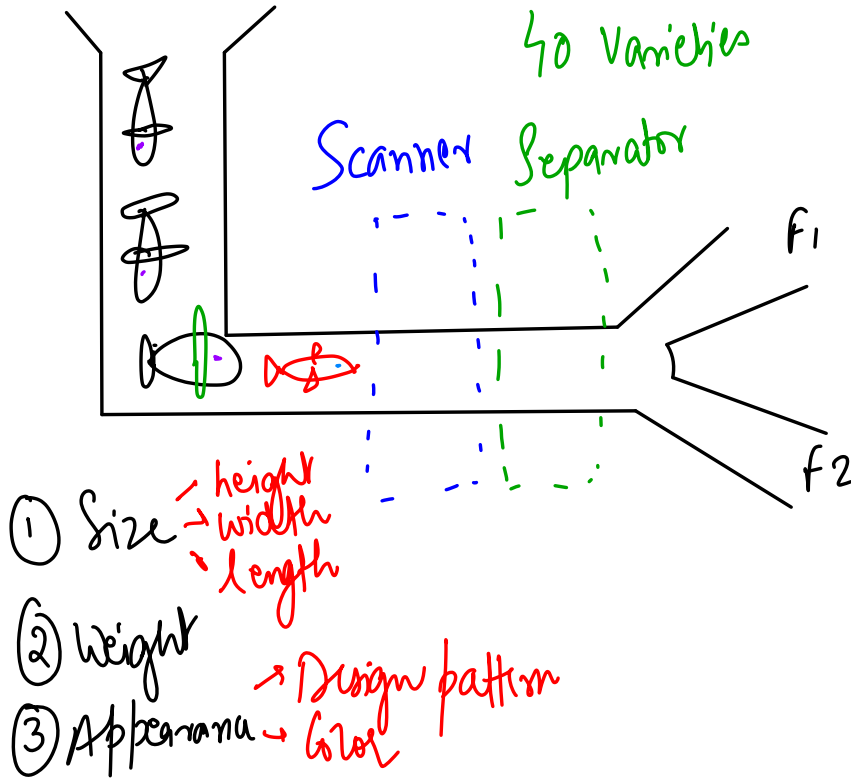 40 Varieties
Scanner
Separator
F1
F2
① Size
height
width
length
② Weight
③ Appearance
Design pattern
Color